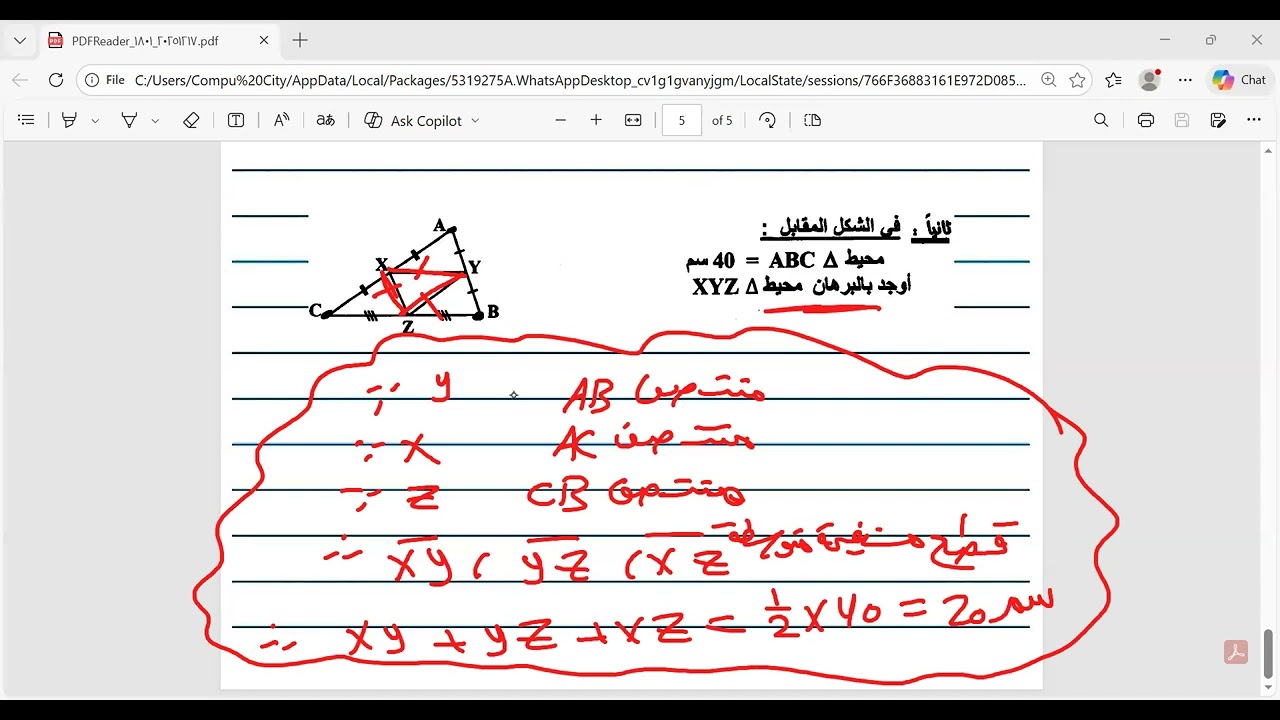 PDFReader_١٨٠١_٢٠٢٥١٢١٧.pdf
File C:/Users/Compu%20City/AppData/Local/Packages/5319275A.WhatsAppDesktop_cv1g1gvanyjgm/LocalState/sessions/766F36883161E972D085... Chat
Ask Copilot 5 of 5
ثانياً : في الشكل المقابل :
محيط Δ ABC = 40 سم
أوجد بالبرهان محيط Δ XYZ
A
X Y
C Z B
∵ y منتصف AB
∵ X منتصف AC
∵ Z منتصف CB
∴ XY , YZ , XZ قطع مستقيمة
∴ XY + YZ + XZ = 1/2 × 40 = 20 سم